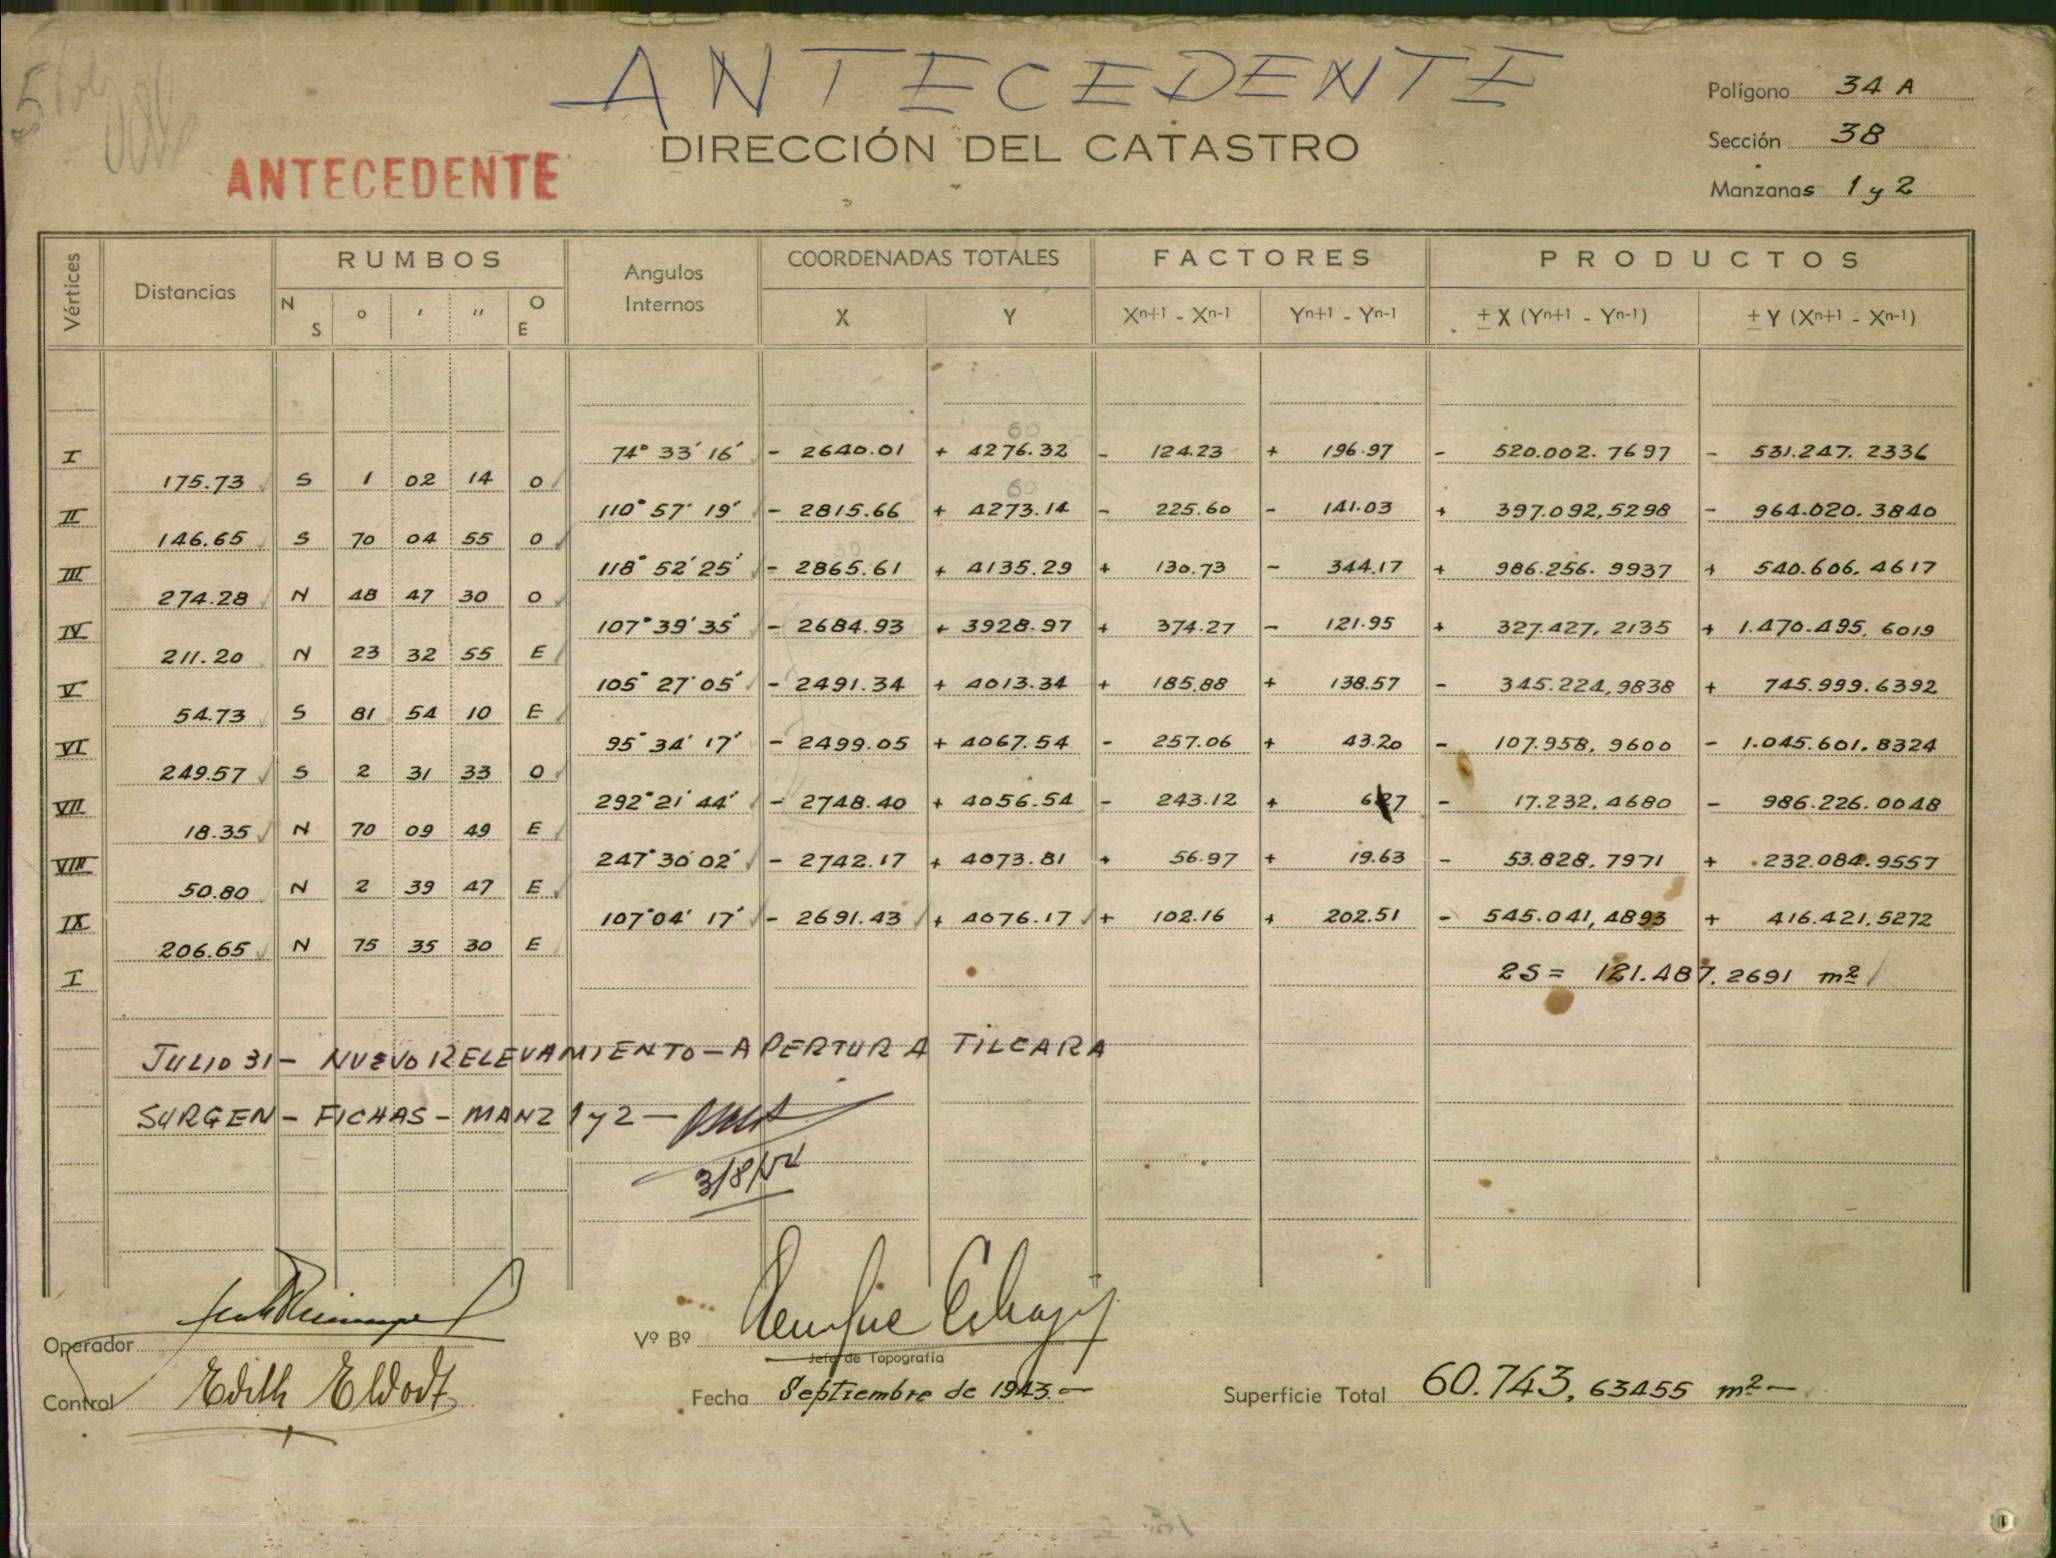 ANTECEDENTE
DIRECCIÓN DEL CATASTRO
ANTECEDENTE
Polígono 34 A
Sección 38
Manzanas 1 y 2
Vértices Distancias RUMBOS Angulos Internos COORDENADAS TOTALES FACTORES PRODUCTOS
N S ° ′ ″ O E X Y Xn+1 - Xn-1 Yn+1 - Yn-1 ± X (Yn+1 - Yn-1) ± Y (Xn+1 - Xn-1)
I 74° 33′ 16″ - 2640.01 + 4276.32 - 124.23 + 196.97 - 520.002.7697 - 531.247.2336
175.73 S 1 02 14 O
II 110° 57′ 19″ - 2815.66 + 4273.14 - 225.60 - 141.03 + 397.092,5298 - 964.020.3840
146.65 S 70 04 55 O
III 118° 52′ 25″ - 2865.61 + 4135.29 + 130.73 - 344.17 + 986.256.9937 + 540.606.4617
274.28 N 48 47 30 O
IV 107° 39′ 35″ - 2684.93 + 3928.97 + 374.27 - 121.95 + 327.427,2135 + 1.470.495,6019
211.20 N 23 32 55 E
V 105° 27′ 05″ - 2491.34 + 4013.34 + 185.88 + 138.57 - 345.224,9838 + 745.999.6392
54.73 S 81 54 10 E
VI 95° 34′ 17″ - 2499.05 + 4067.54 - 257.06 + 43.20 - 107.958,9600 - 1.045.601,8324
249.57 S 2 31 33 O
VII 292° 21′ 44″ - 2748.40 + 4056.54 - 243.12 + 6.27 - 17.232,4680 - 986.226.0048
18.35 N 70 09 49 E
VIII 247° 30′ 02″ - 2742.17 + 4073.81 + 56.97 + 19.63 - 53.828,7971 + 232.084.9557
50.80 N 2 39 47 E
IX 107° 04′ 17″ - 2691.43 + 4076.17 + 102.16 + 202.51 - 545.041,4893 + 416.421,5272
206.65 N 75 35 30 E
I 2S = 121.487.2691 m²
JULIO 31 - NUEVO RELEVAMIENTO - APERTURA TILCARA
SURGEN - FICHAS - MANZ 1 y 2 -
Operador
Vº Bº
Jefe de Topografía
Control Edith Eldodt
Fecha Septiembre de 1943.-
Superficie Total 60.743,63455 m² -